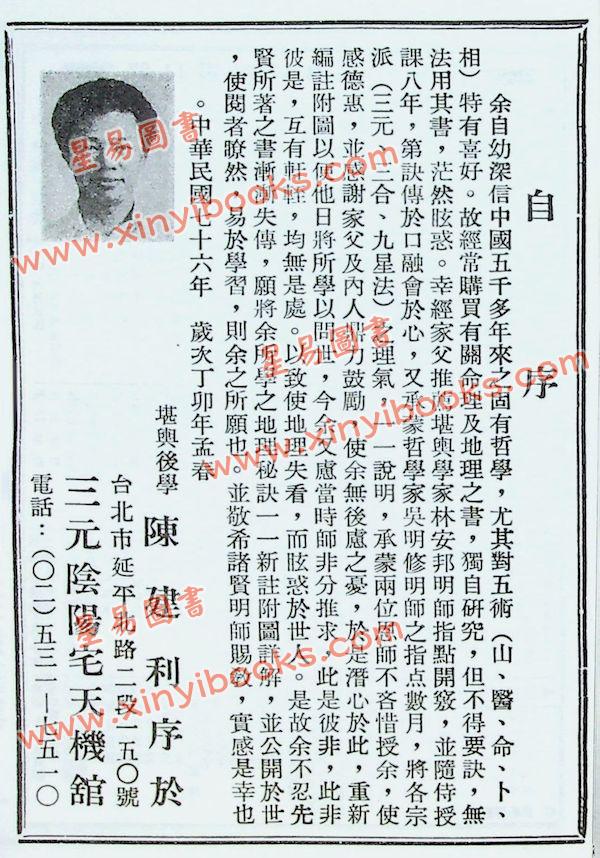 自序
余自幼深信中國五千多年來之固有哲學，尤其對五術（山、醫、命、卜、
相）特有喜好。故經常購買有關命理及地理之書，獨自研究，但不得要訣，無
法用其書，茫然眩惑。幸經家父推薦堪輿學家林安邦明師指點開竅，並隨侍授
課八年，第訣傳於口融會於心，又承蒙哲學家吳明修明師之指点數月，將各宗
派（三元、三合、九星法）之理氣，一一說明，承蒙兩位恩師不吝惜授余，使
感德惠，並感謝家父及內人鼎力鼓勵，使余無後慮之憂，於是潛心於此，重新
編註附圖以便他日將所學以問世，今余又慮當時師非分推求，此是彼非，此非
彼是，互有軒輊，均無是處。以致使地理失看，而眩惑於世人。是故余不忍先
賢所著之書漸漸失傳，願將余所學之地理秘訣一一新註附圖詳解，並公開於世
，使閱者瞭然，易於學習，則余之所願也。並敬希諸賢明師賜教，實感是幸也
。中華民國七十六年　歲次丁卯年孟春
堪輿後學　陳建利序於
台北市延平北路二段一五〇號
三元陰陽宅天機舘
電話：（〇二）五三一－七五一〇
星易圖書
www.xinyibooks.com
星易圖書
www.xinyibooks.com
星易圖書
www.xinyibooks.com